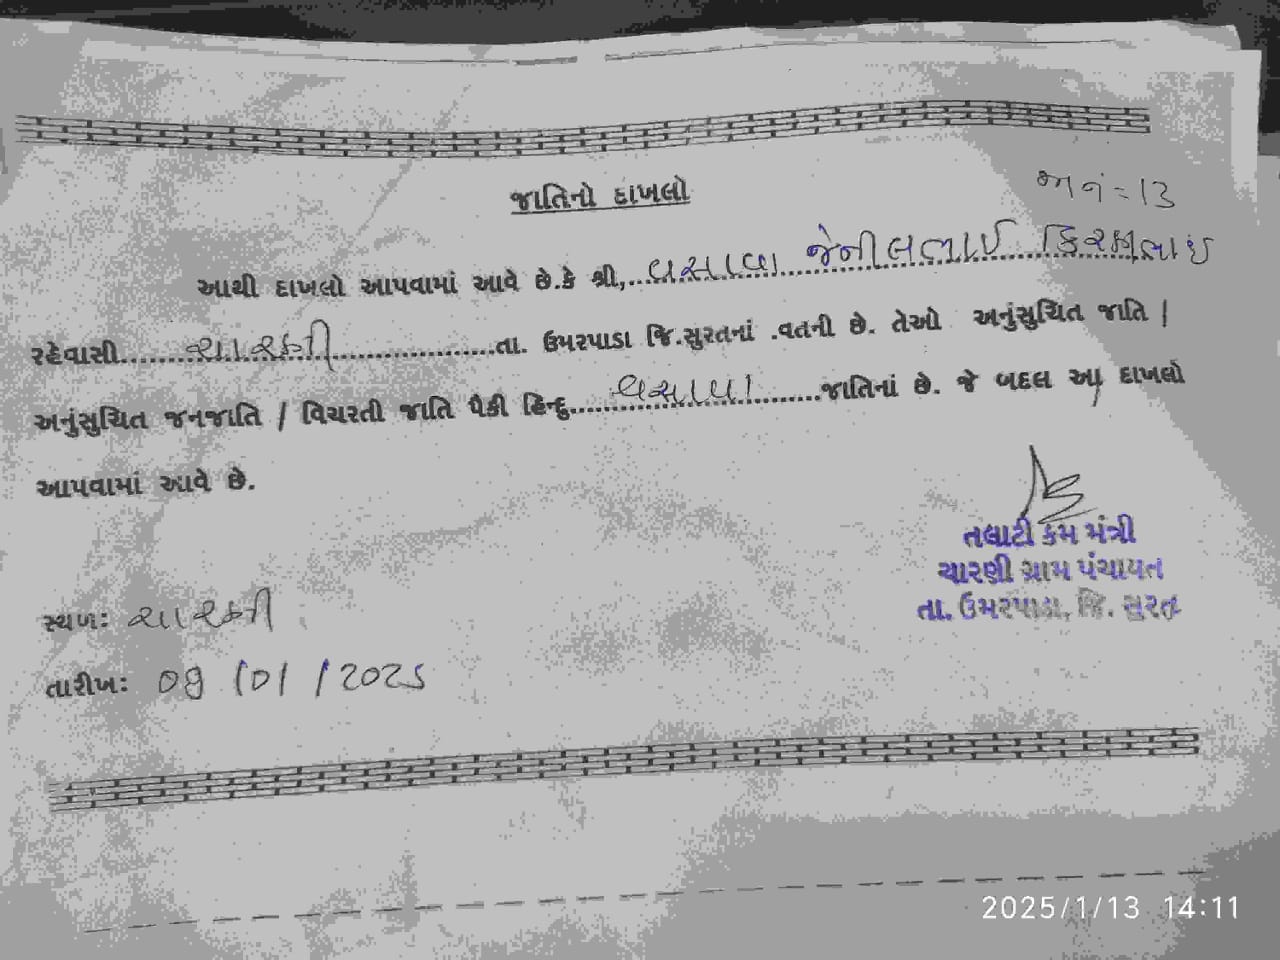 જાતિનો દાખલો
અ નં = 13
આથી દાખલો આપવામાં આવે છે.કે શ્રી,...વસાવા જેનીલભાઈ કિરણભાઇ
રહેવાસી...ચારણી...તા. ઉમરપાડા જિ.સુરતનાં .વતની છે. તેઓ અનુંસુચિત જાતિ /
અનુંસુચિત જનજાતિ / વિચરતી જાતિ પૈકી હિન્દુ...વસાવા...જાતિનાં છે. જે બદલ આ દાખલો
આપવામાં આવે છે.
તલાટી કમ મંત્રી
ચારણી ગ્રામ પંચાયત
તા. ઉમરપાડા, જિ. સુરત
સ્થળઃ ચારણી
તારીખઃ 09/01/2025
2025/1/13 14:11